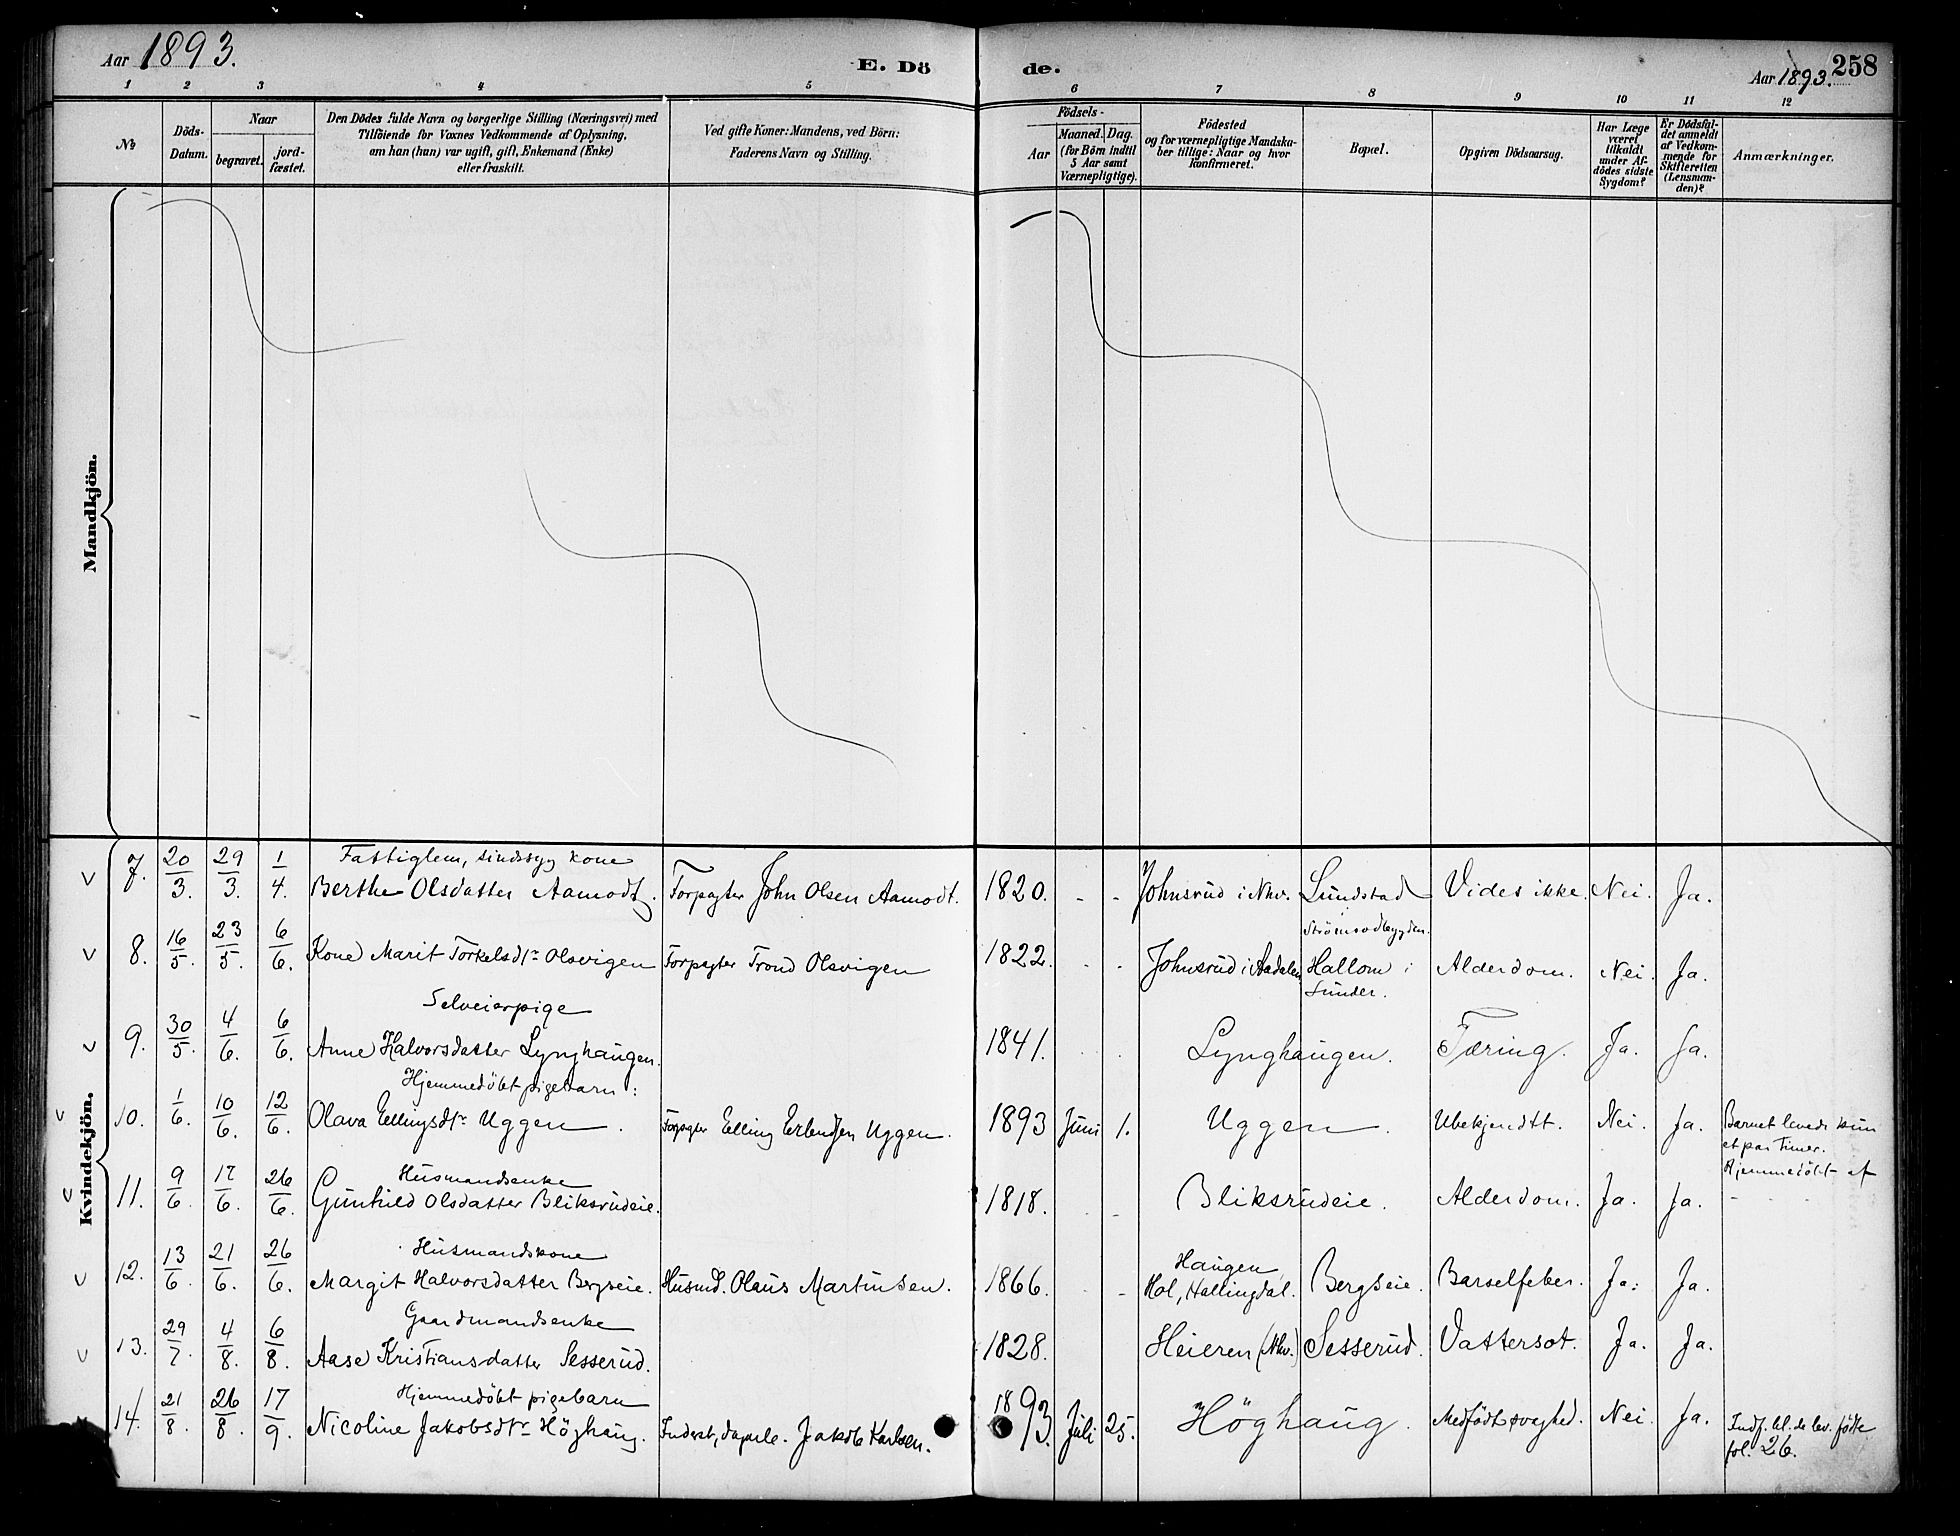 Aar 1893.
E. Dö
de.
Aar 1893.
258
1 2 3 4 5 6 7 8 9 10 11 12
№
Döds-
Datum.
Naar
begravet.
jord-
fæstet.
Den Dödes fulde Navn og borgerlige Stilling (Næringsvei) med
Tilföiende for Voxnes Vedkommende af Oplysning,
om han (hun) var ugift, gift, Enkemand (Enke)
eller fraskilt.
Ved gifte Koner: Mandens, ved Börn:
Faderens Navn og Stilling.
Födsels-
Aar
Maaned.
Dag.
(for Börn indtil
5 Aar samt
Værnepligtige).
Födested
og for værnepligtige Mandska-
ber tillige: Naar og hvor
konfirmeret.
Bopæl.
Opgiven Dödsaarsag.
Har Læge
været
tilkaldt
under Af-
dödes sidste
Sygdom?
Er Dödsfal-
det anmeldt
af Vedkom-
mende for
Skifteretten
(Lensman-
den)?
Anmærkninger.
Mandkjön.
Kvindekjön.
7. 20/3. 29/3. 1/4. Fattiglem, sindssyg kone
Berthe Olsdatter Aamodt. Forpagter John Olsen Aamodt. 1820. - - Johnsrud i Nhv. Lundstad Vides ikke. Nei. Ja.
Strömsodbygden.
8. 16/5. 23/5. 6/6. Kone Marit Torkelsdtr Olsvigen Forpagter Trond Olsvigen 1822. - - Johnsrud i Aadalen Hallom i Alderdom. Nei. Ja.
Lunder.
9. 30/5. 4/6. 6/6. Selveierpige
Anne Halvorsdatter Lynghaugen. 1841. Lynghaugen. Tæring. Ja. Ja.
10. 1/6. 10/6. 12/6. Hjemmedöbt pigebarn:
Olava Ellingsdtr Uggen. Forpagter Elling Erlendsen Uggen. 1893 Juni 1. Uggen. Ubekjendt. Nei. Ja. Barnet levede kun
et par Timer.
Hjemmedöbt af
11. 9/6. 17/6. 26/6. Husmandsenke
Gunhild Olsdatter Bliksrudeie. 1818. - Bliksrudeie. Alderdom. Ja. Ja. - - -
12. 13/6. 21/6. 26/6. Husmandskone
Margit Halvorsdatter Bergseie. Husmd. Olaus Martinsen. 1866. - Haugen
Hol, Hallingdal. Bergseie. Barselfeber. Ja. Ja.
13. 29/7. 4/8. 6/8. Gaardmandsenke
Aase Kristiansdatter Sesserud. 1828. Heieren (Nhv.) Sesserud. Vattersot. Ja. Ja.
14. 21/8. 26/8. 17/9. Hjemmedöbt pigebarn
Nicoline Jakobsdtr Höghaug. Inderst, dagarb. Jakob Karlsen. 1893. Juli 25. Höghaug. Medfödt svaghed. Nei. Ja. Indf. bl. de lev. födte
fol. 26.